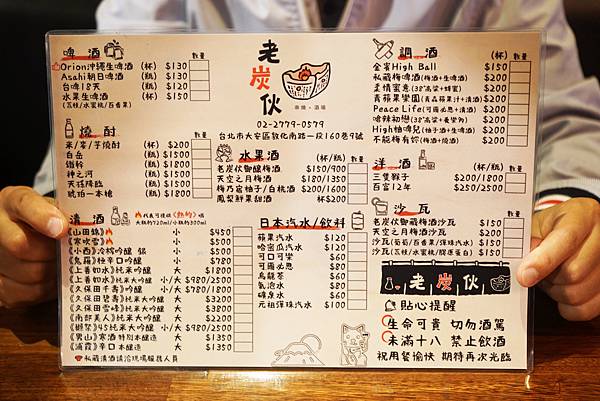 啤酒 數量
Orion沖繩生啤酒 (杯) $130
Asahi朝日啤酒 (瓶) $130
台啤18天 (瓶) $120
水果生啤酒 (杯) $150
(荔枝/水蜜桃/百香果)
燒酎 數量
米/麥/芋燒酎 (杯) $200
白岳 (瓶) $1500
鐵幹 (瓶) $1800
神之河 (瓶) $1500
天孫降臨 (瓶) $1500
琥珀一本槍 (瓶) $1800
清酒
代表可提供《熱酌》喔
大瓶約720ml/小瓶約300ml
數量
《山田錦》 小 $450
《寒吹雪》 小 $500
《小西》冷原吟釀 銀 小 $500
《鬼羅》辛口吟釀 大 $1350
《上善如水》純米吟釀 大 $1800
《上善如水》純米大吟釀 小/大 $980/2500
《久保田千壽》吟釀 小/大 $780/1800
《久保田碧壽》純米大吟釀 大 $3200
《久保田雪峰》純米大吟釀 大 $3800
《南部美人》純米大吟釀 大 $2000
《獺祭》45純米大吟釀 小/大 $980/2500
《男山》寒酒 特別本釀造 大 $1350
《浦霞》辛口 本釀造 大 $1350
私藏清酒請洽現場服務人員
老炭伙
串燒・酒場
02-2779-0579
台北市大安區敦化南路一段160巷9號
水果酒 (杯/瓶) 數量
老炭伙御釀梅酒 $150/900
天空之月梅酒 $180/1350
梅乃宿柚子/白桃酒 $200/1600
鳳梨酥果甜酒 (杯) $200
日本汽水/飲料 數量
蘋果汽水 $120
哈密瓜汽水 $120
可口可樂 $60
可爾必思 $80
烏龍茶 $60
氣泡水 $80
礦泉水 $60
元祖彈珠汽水 $100
調酒 (杯) 數量
金賓High Ball $150
私藏梅啤酒(梅酒+生啤酒) $200
柔情蜜意(38°高粱+蜂蜜) $200
青蘋果樂園(青森蘋果汁+清酒) $200
Peace Life(可爾必思+清酒) $200
嗆辣初戀(38°高粱+養樂多) $200
High柚嗨兒(柚子酒+生啤酒) $200
不能梅有妳(梅酒+燒酒) $200
洋酒 (杯/瓶) 數量
三隻猴子 $200/1800
百富12年 $250/2500
沙瓦 (杯) 數量
老炭伙御藏梅酒沙瓦 $150
天空之月沙瓦 $200
沙瓦(葡萄/百香果/彈珠汽水) $150
沙瓦(荔枝/水蜜桃/膠原蛋白) $150
老炭伙
貼心提醒
生命可貴 切勿酒駕
未滿十八 禁止飲酒
祝用餐愉快 期待再次光臨